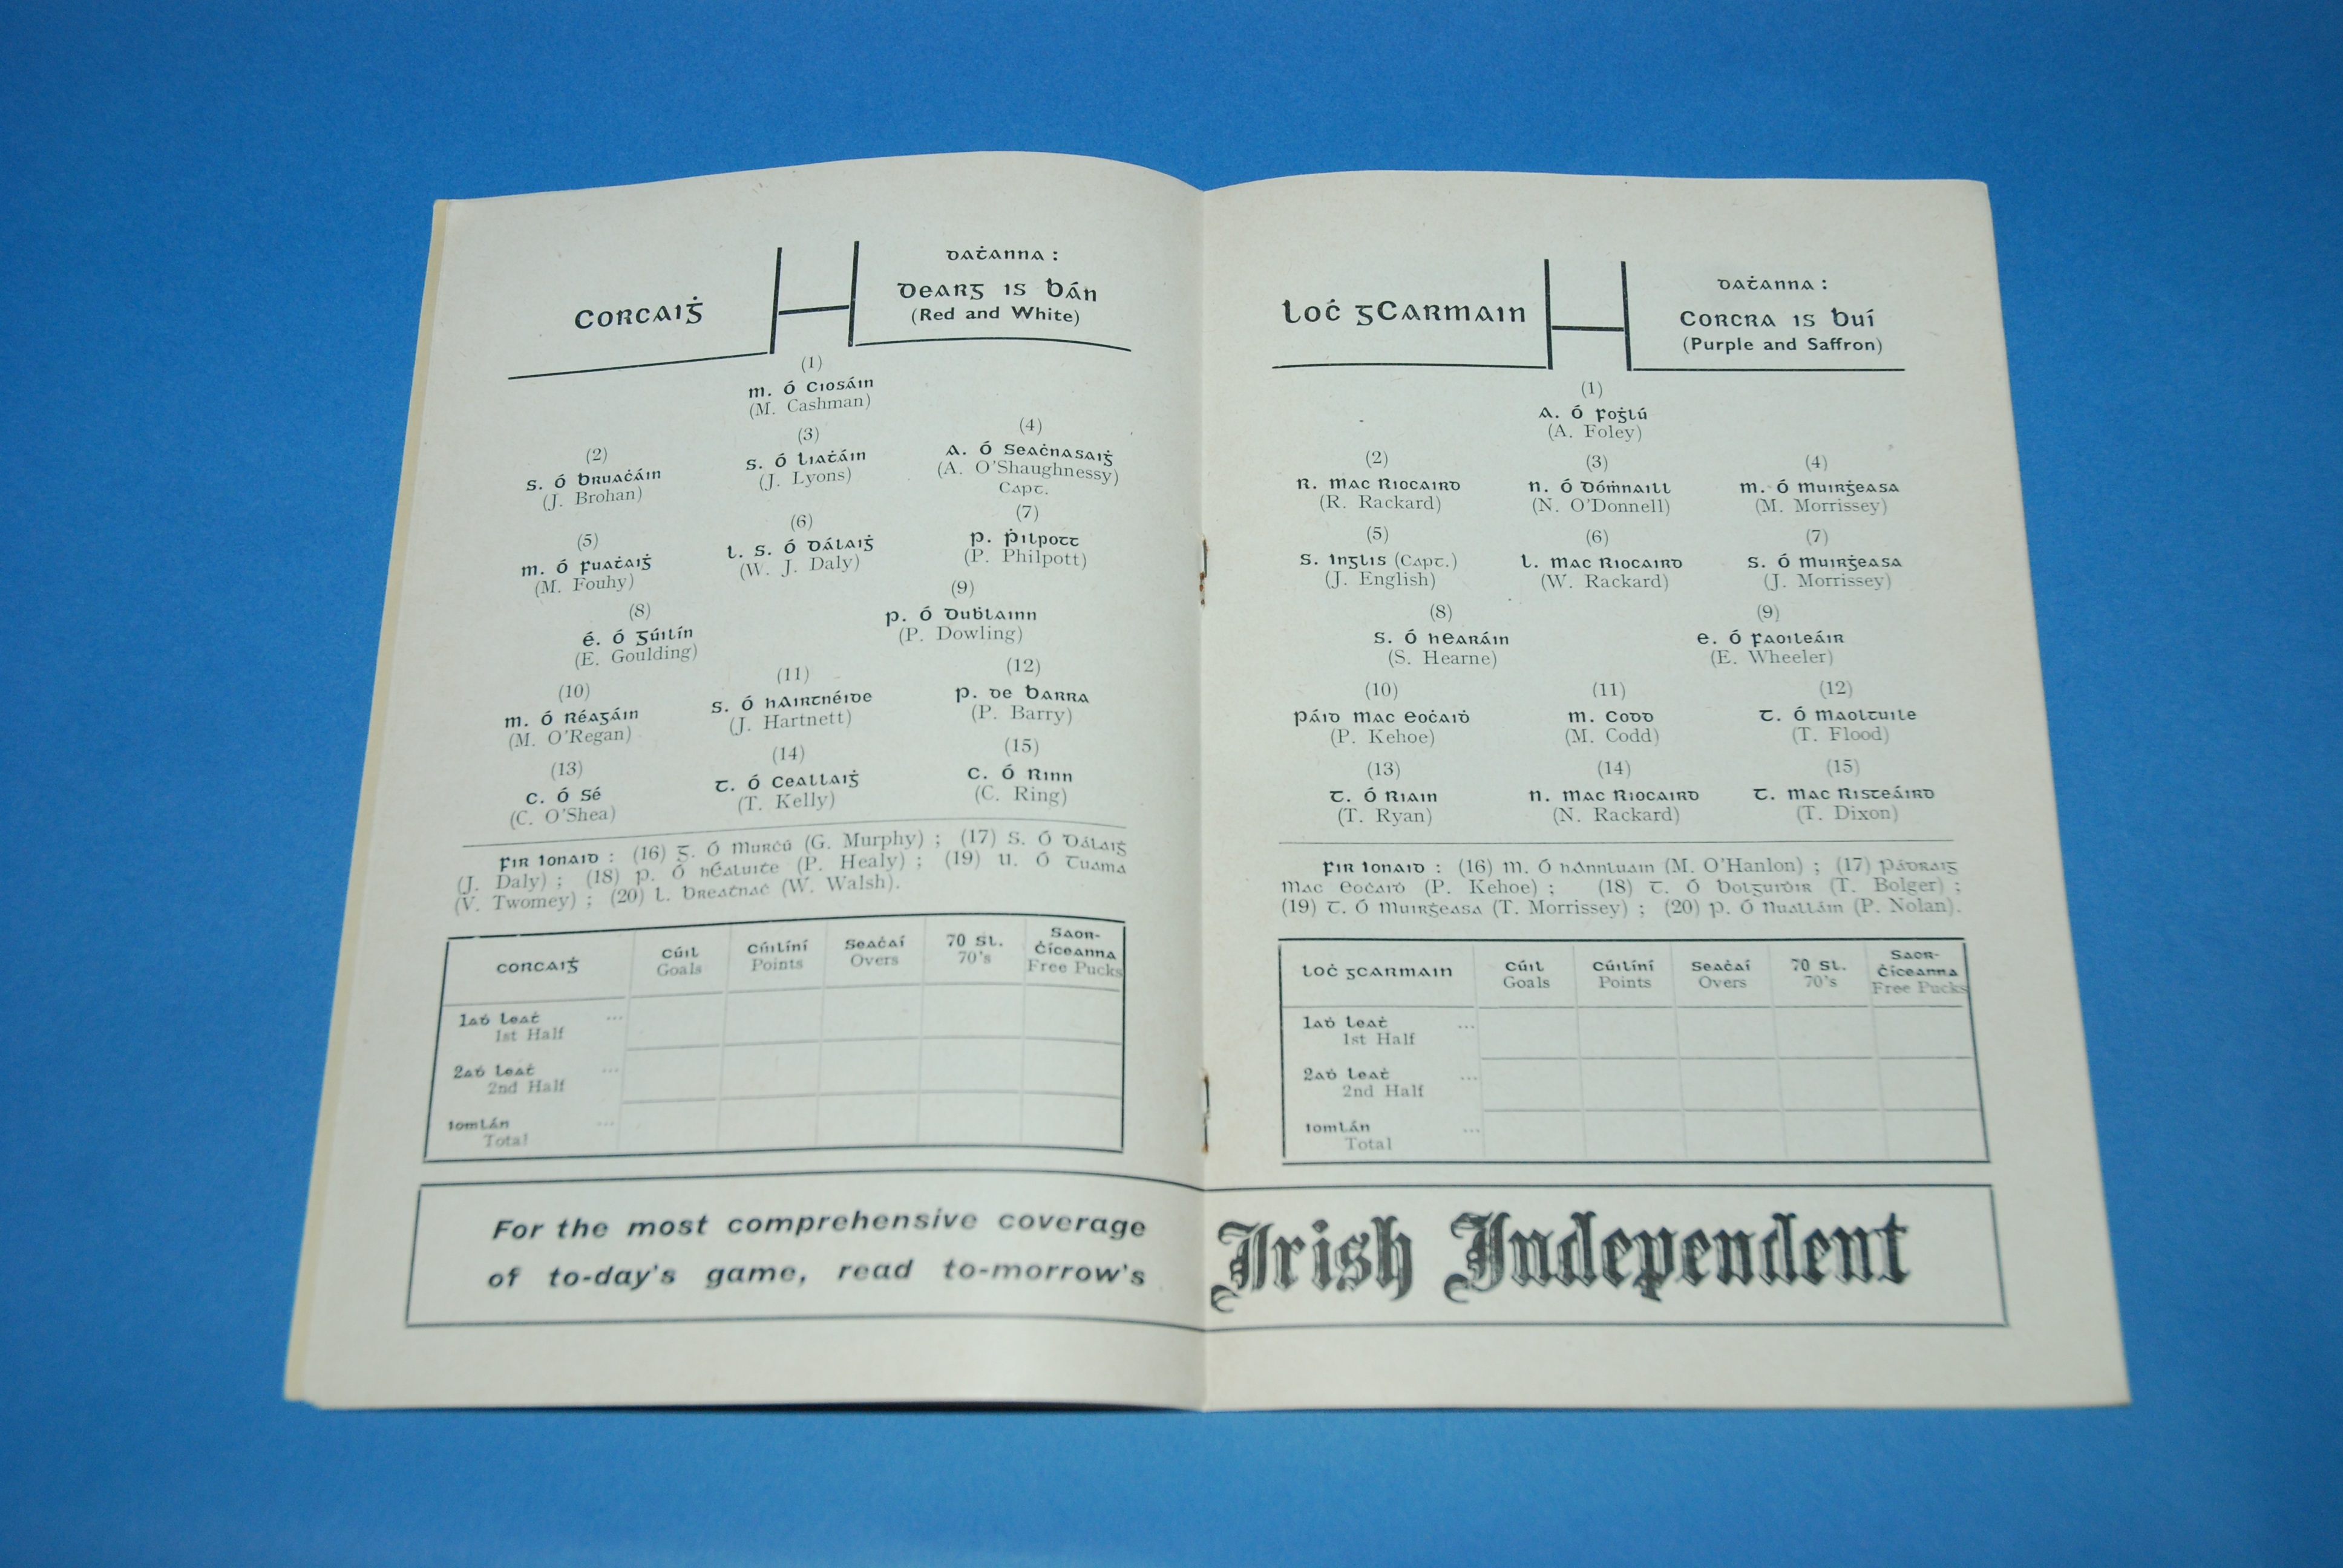 Corcaiġ
Daṫanna :
Dearg is Bán
(Red and White)
(1)
M. Ó Ciosáin
(M. Cashman)
(2) (3) (4)
S. Ó Bruaċáin S. Ó Liaṫáin A. Ó Seaċnasaiġ
(J. Brohan) (J. Lyons) (A. O'Shaughnessy)
Capt.
(5) (6) (7)
M. Ó Fuaṫaiġ L. S. Ó Dálaiġ P. Ṗilpott
(M. Fouhy) (W. J. Daly) (P. Philpott)
(8) (9)
É. Ó Gúilín P. Ó Duḃlainn
(E. Goulding) (P. Dowling)
(10) (11) (12)
M. Ó Réagáin S. Ó hAirtnéide P. de Barra
(M. O'Regan) (J. Hartnett) (P. Barry)
(13) (14) (15)
C. Ó Sé T. Ó Ceallaiġ C. Ó Rinn
(C. O'Shea) (T. Kelly) (C. Ring)
Fir Ionaid : (16) G. Ó Murċú (G. Murphy) ; (17) S. Ó Dálaiġ
(J. Daly) ; (18) P. Ó hÉaluiṫe (P. Healy) ; (19) U. Ó Tuama
(V. Twomey) ; (20) L. Breaṫnaċ (W. Walsh).
Corcaiġ Cúil Cúilíní Seaċaí 70 Sl. Saor-
Ċiceanna
Goals Points Overs 70's Free Pucks
1aḋ Leaṫ ...
1st Half
2aḋ Leaṫ ...
2nd Half
Iomlán ...
Total
For the most comprehensive coverage
of to-day's game, read to-morrow's
Loċ gCarmain
Daṫanna :
Corcra is Buí
(Purple and Saffron)
(1)
A. Ó Foġlú
(A. Foley)
(2) (3) (4)
R. Mac Riocaird N. Ó Dóṁnaill M. Ó Muirġeasa
(R. Rackard) (N. O'Donnell) (M. Morrissey)
(5) (6) (7)
S. Inglis (Capt.) L. Mac Riocaird S. Ó Muirġeasa
(J. English) (W. Rackard) (J. Morrissey)
(8) (9)
S. Ó hEaráin E. Ó Faoileáir
(S. Hearne) (E. Wheeler)
(10) (11) (12)
Páid Mac Eoċaiḋ M. Codd T. Ó Maoltuile
(P. Kehoe) (M. Codd) (T. Flood)
(13) (14) (15)
T. Ó Riain N. Mac Riocaird T. Mac Risteáird
(T. Ryan) (N. Rackard) (T. Dixon)
Fir Ionaid : (16) M. Ó hAnnluain (M. O'Hanlon) ; (17) Pádraig
Mac Eoċaiḋ (P. Kehoe) ; (18) T. Ó Bolguiḋir (T. Bolger) ;
(19) T. Ó Muirġeasa (T. Morrissey) ; (20) P. Ó Nualláin (P. Nolan).
Loċ gCarmain Cúil Cúilíní Seaċaí 70 Sl. Saor-
Ċiceanna
Goals Points Overs 70's Free Pucks
1aḋ Leaṫ ...
1st Half
2aḋ Leaṫ ...
2nd Half
Iomlán ...
Total
Irish Independent